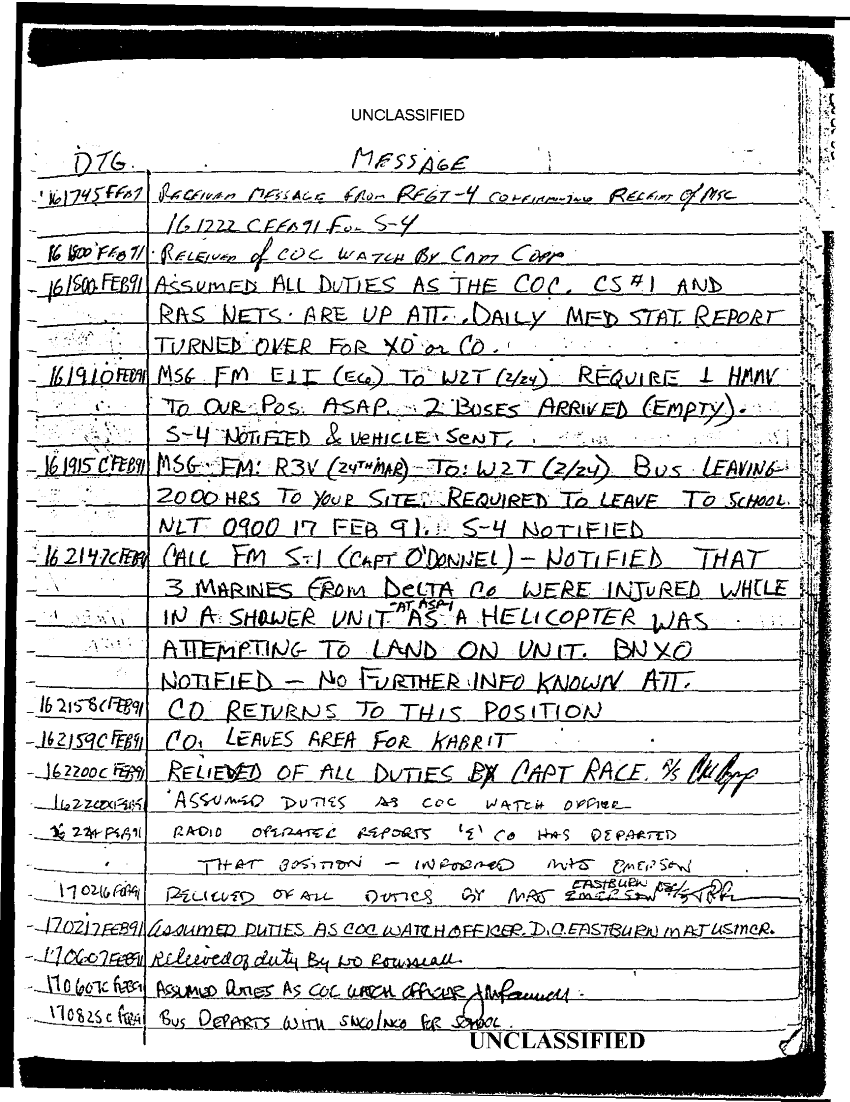 UNCLASSIFIED
DTG. MESSAGE
161745 FEB91 RECEIVED MESSAGE FROM REGT-4 CONFIRMING RECEIPT of MSG
161222 C FEB91 FOR S-4
161800 FEB 91 RELIEVED of COC WATCH BY CAPT COPP
161800 FEB91 ASSUMED ALL DUTIES AS THE COC. CS #1 AND
RAS NETS ARE UP ATT. DAILY MED STAT. REPORT
TURNED OVER FOR XO or CO.
161910 FEB91 MSG FM E1I (ECo) TO W2T (2/24) REQUIRE 1 HMMV
TO OUR POS. ASAP. 2 BUSES ARRIVED (EMPTY).
S-4 NOTIFIED & VEHICLE SENT.
161915 C FEB91 MSG FM: R3V (24TH MAR) - TO: W2T (2/24) BUS LEAVING
2000 HRS TO YOUR SITE. REQUIRED TO LEAVE TO SCHOOL
NLT 0900 17 FEB 91. S-4 NOTIFIED
162147C FEB91 CALL FM S-1 (CAPT O'DONNEL) - NOTIFIED THAT
3 MARINES FROM DELTA Co WERE INJURED WHILE
IN A SHOWER UNIT -AT ASP-1 AS A HELICOPTER WAS
ATTEMPTING TO LAND ON UNIT. BNXO
NOTIFIED - NO FURTHER INFO KNOWN ATT.
162158C FEB91 CO RETURNS TO THIS POSITION
162159C FEB91 CO. LEAVES AREA FOR KABRIT
162200C FEB91 RELIEVED OF ALL DUTIES BY CAPT RACE. R/S
ASSUMED DUTIES AS COC WATCH OFFICER
RADIO OPERATOR REPORTS 'E' CO HAS DEPARTED
THAT POSITION - INFORMED MAJ EMERSON
170216 FEB91 RELIEVED OF ALL DUTIES BY MAJ EASTBURN EMERSON
170217 FEB91 ASSUMED DUTIES AS COC WATCH OFFICER. D.C. EASTBURN MAJ USMCR.
170607 FEB91 Relieved of duty By WO Rousseau.
170607C FEB91 ASSUMED DUTIES AS COC WATCH OFFICER
170825C FEB91 BUS DEPARTS WITH SNCO/NCO FOR SCHOOL.
UNCLASSIFIED